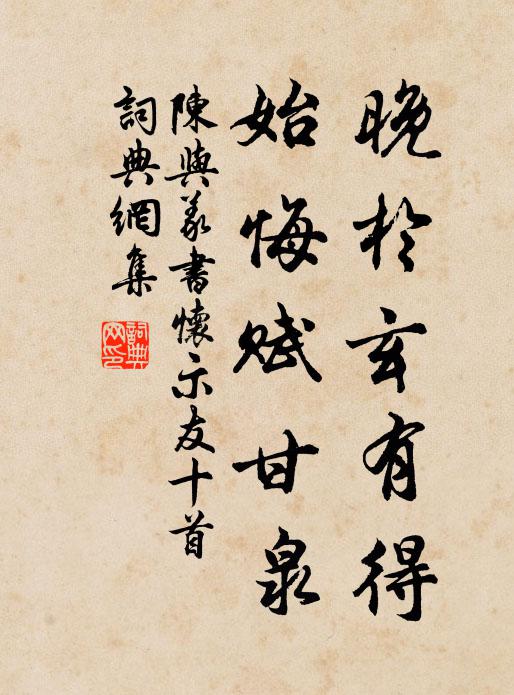 晚於玄有得
始悔賦甘泉
陳與義書懷示友十首
詞典網集
詞典網印